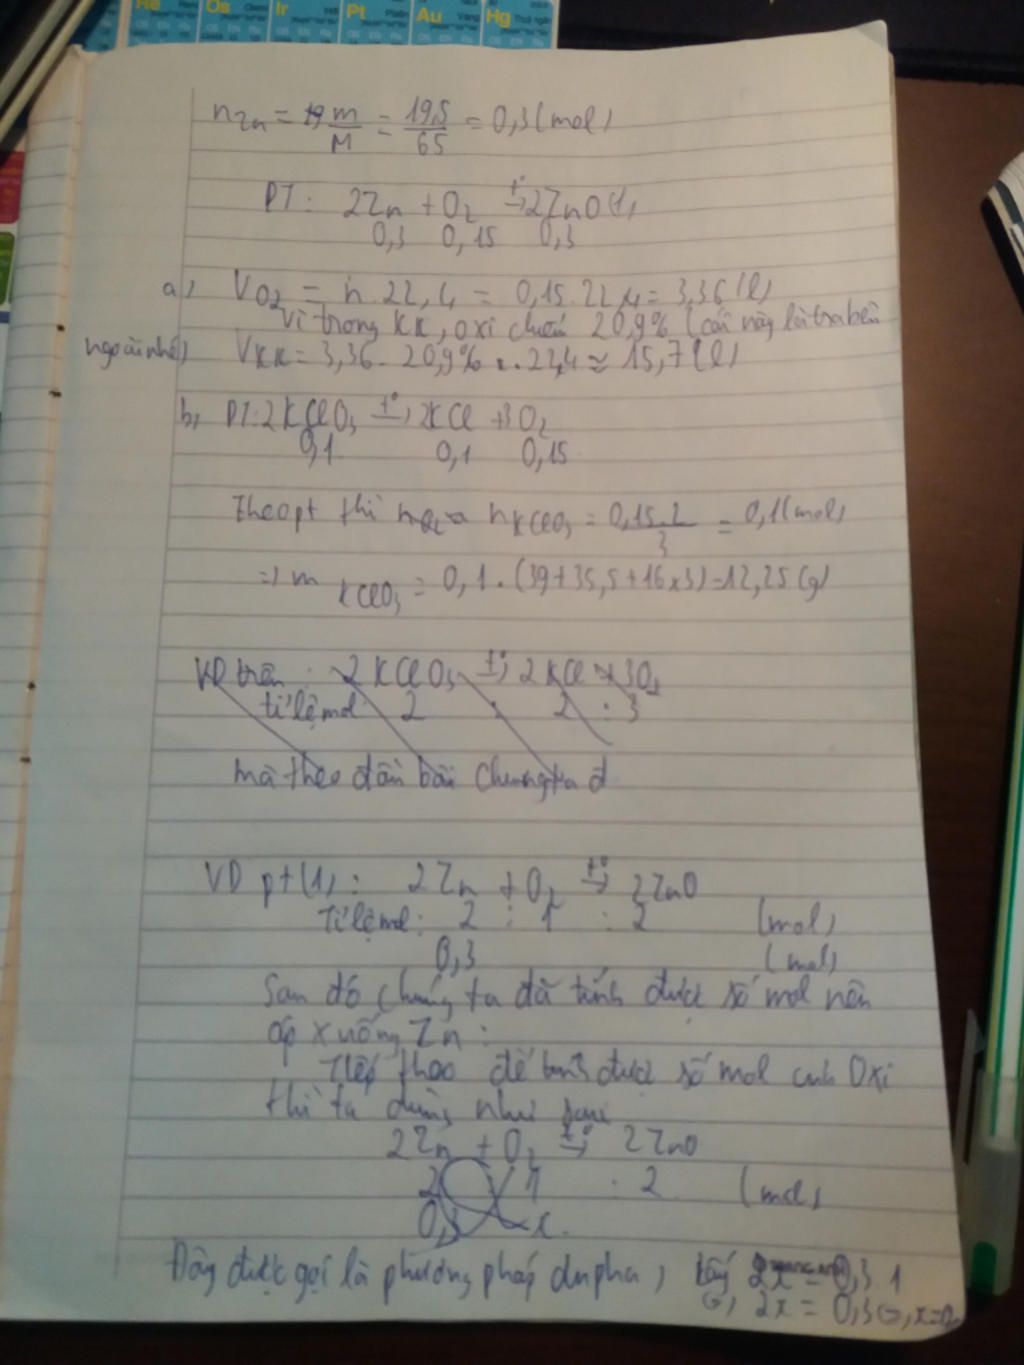 Re
Os
Ir
Pt
Au Vàng
Hg Thuỷ ngân
n Zn = m/M = 19,5/65 = 0,3 (mol)
PT: 2Zn + O2 t°→ 2ZnO (1)
0,3 0,15 0,3
a) VO2 = n.22,4 = 0,15.22,4 = 3,36 (l)
Vì trong KK, oxi chiếm 20,9% (cái này là tra bên
ngoài nhé) VKK = 3,36 . 20,9% . 22,4 ≈ 15,7 (l)
b, PT: 2KClO3 t°→ 2KCl + 3O2
0,1 0,1 0,15
Theo pt thì nKClO3 = 0,15.2/3 = 0,1 (mol)
=> m KClO3 = 0,1 . (39+35,5+16x3) = 12,25 (g)
VD trên : 2KClO3 t°→ 2KCl + 3O2
tỉ lệ mol 2 : 2 : 3
mà theo đầu bài chúng ta đ
VD pt(1) : 2Zn + O2 t°→ 2ZnO
Tỉ lệ mol : 2 : 1 : 2 (mol)
0,3 (mol)
Sau đó chúng ta đã tính được số mol nên
áp xuống Zn :
Tiếp theo để tính được số mol của Oxi
thì ta dùng như sau
2Zn + O2 t°→ 2ZnO
2 1 : 2 (mol)
0,3 x
Đây được gọi là phương pháp, lấy 2x = 0,3.1
2x = 0,3